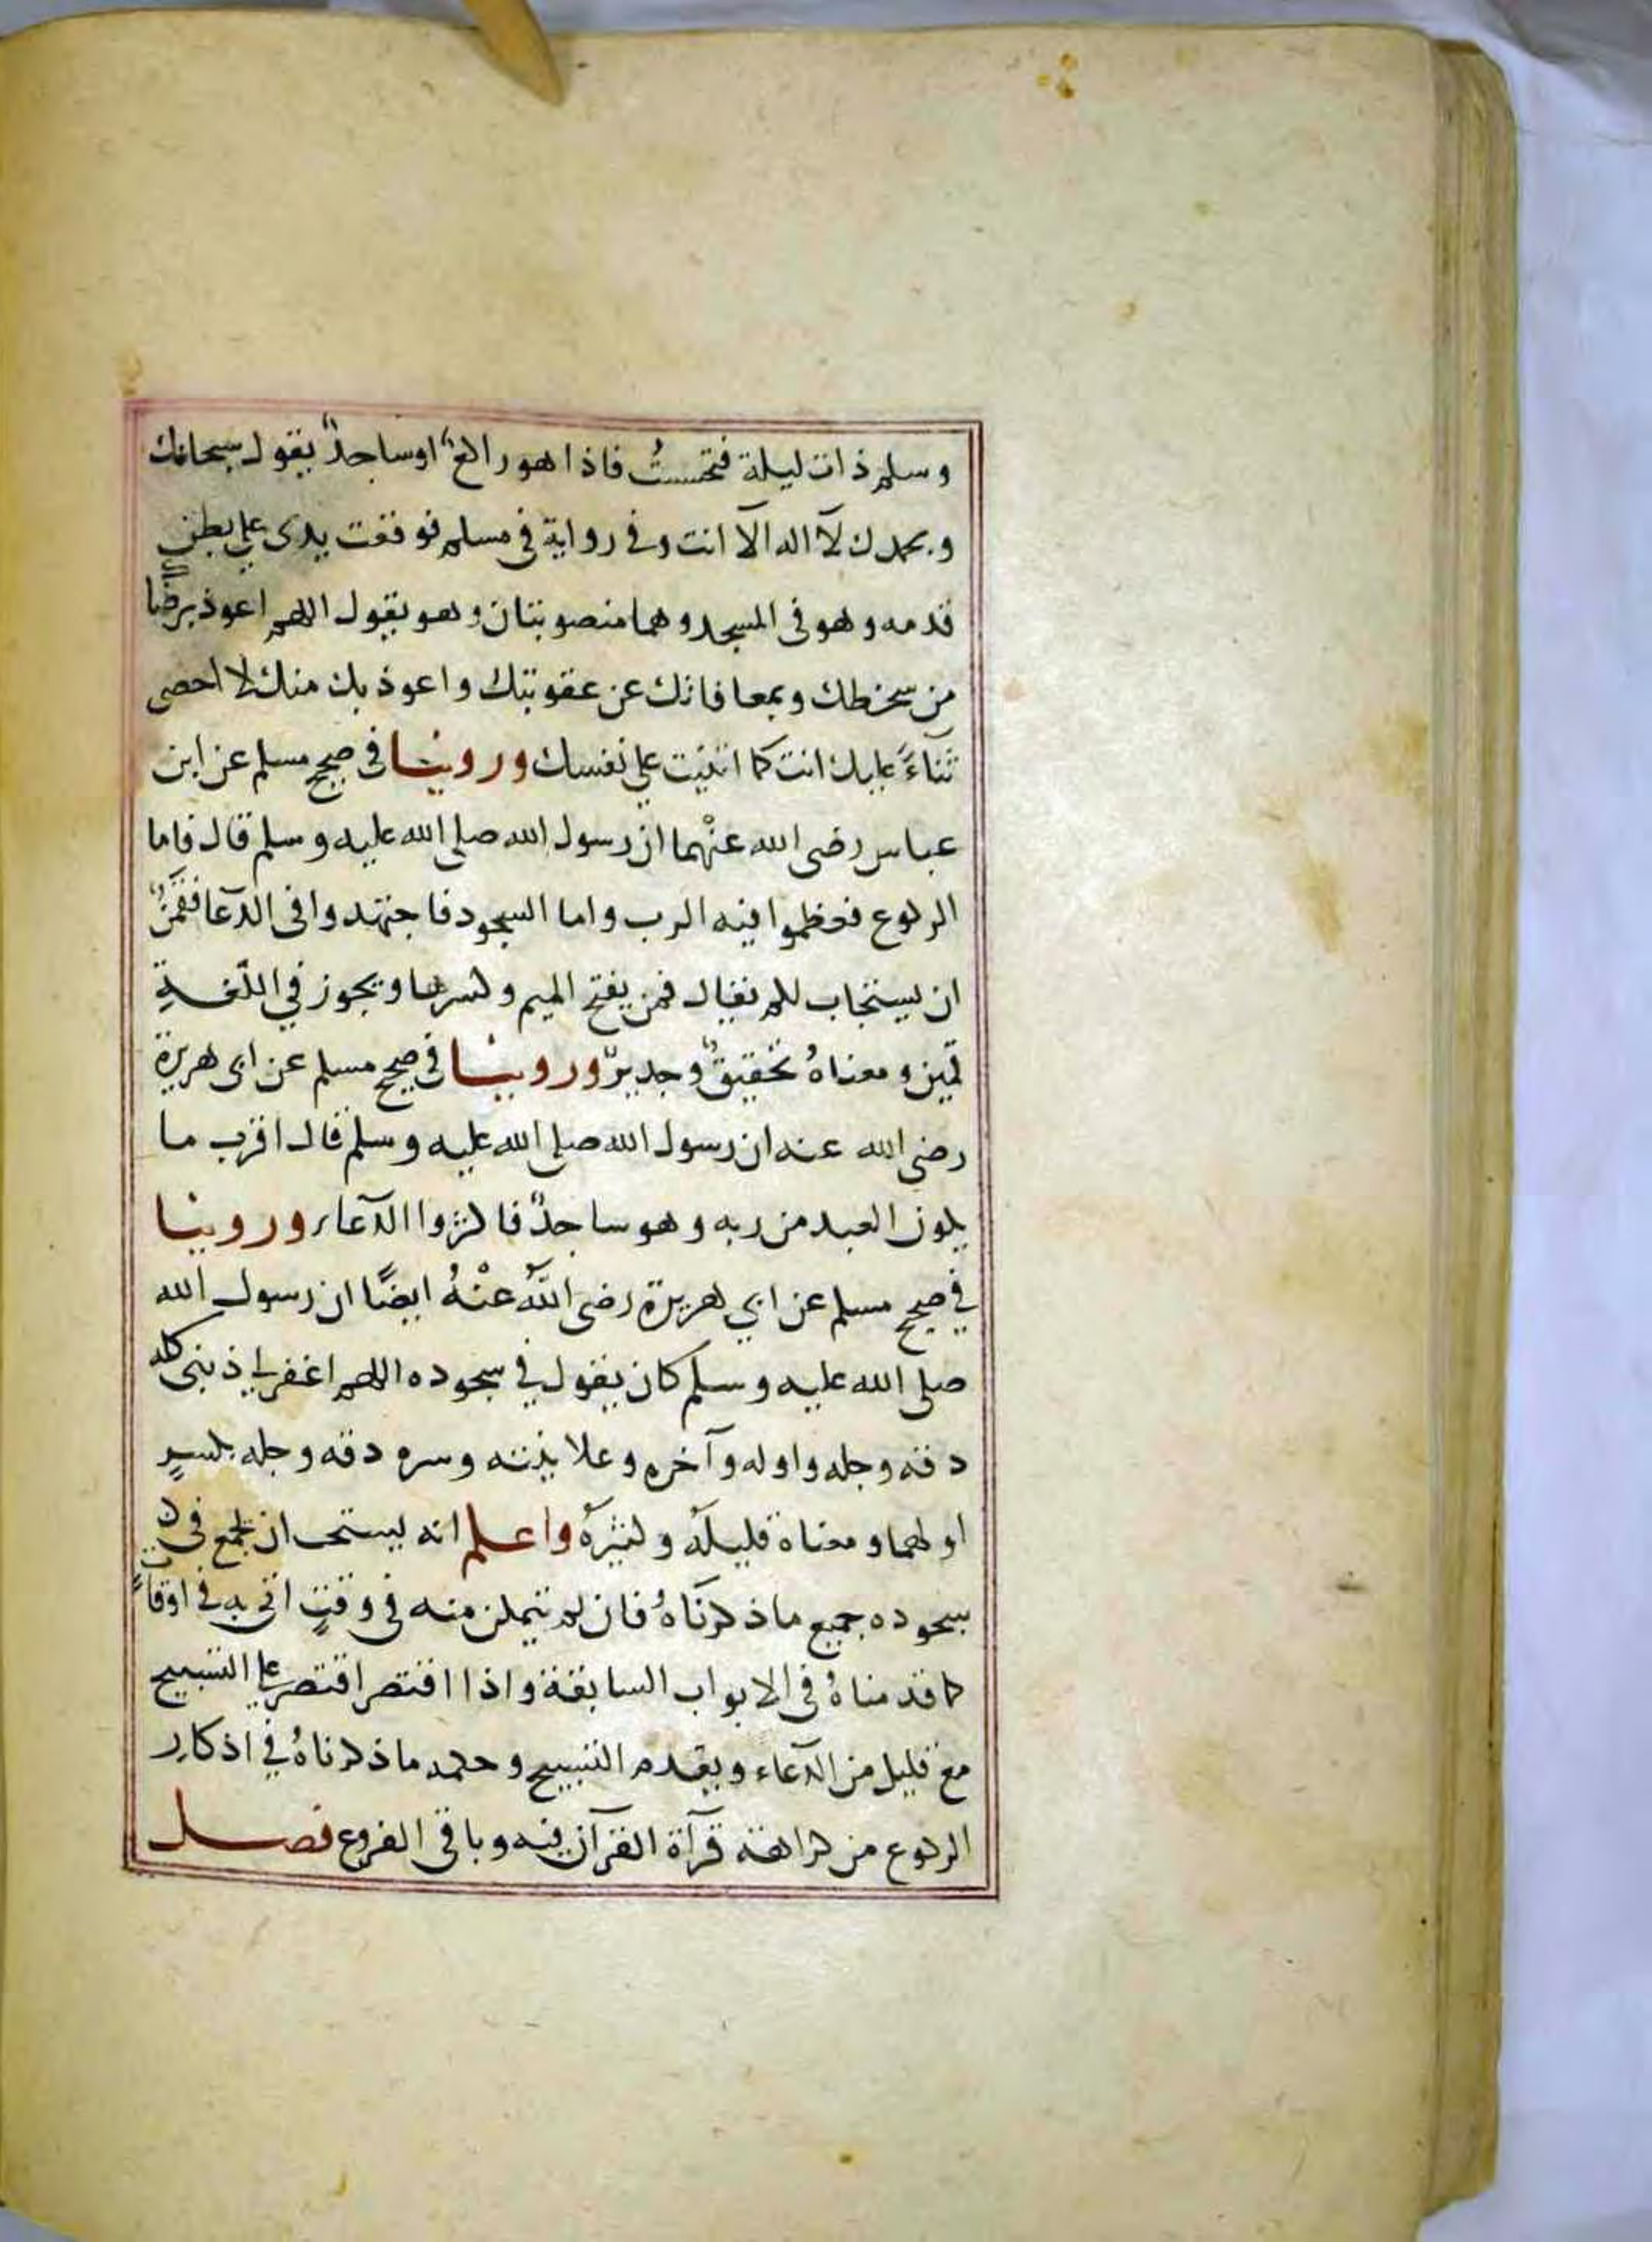 وسلم ذات ليلة فتحسستُ فاذا هو راكعٌ اوساجدٌ يقول سبحانك
وبحمدك لآ اله الآ انت وفي رواية في مسلم فوقعت يدى على بطن
قدمه وهو في المسجد وهما منصوبتان وهو يقول اللهم اعوذ برضاك
من سخطك وبمعافاتك عن عقوبتك واعوذ بك منك لا احصى
ثناءً عليك انت كما اثنيت على نفسك وروينا في صحيح مسلم عن ابن
عباس رضى الله عنْهما ان رسول الله صلى الله عليه وسلم قال فاما
الركوع فعظموا فيه الرب واما السجود فاجتهدوا في الدّعا فقمنٌ
ان يستجاب لكم يقال قمن بفتح الميم وكسرها ويجوز في اللّغة
قمين ومعناهُ تحقيقٌ وجديرٌ وروينا في صحيح مسلم عن ابى هريرة
رضى الله عنه ان رسول الله صلى الله عليه وسلم قال اقرب ما
يكون العبد من ربه وهو ساجدٌ فاكثروا الدّعاء وروينا
في صحيح مسلم عن ابي هريرة رضى اللّٰهُ عنْهُ ايضًا ان رسول الله
صلى الله عليه وسلم كان يقول في سجوده اللهم اغفر لي ذنبى كله
دقه وجله واوله وآخره وعلانيته وسره دقه وجله بكسرٍ
اولهما ومعناه قليلهُ وكثيرهُ واعلم انه يستحب ان يجمع في
سجوده جميع ماذكرناهُ فان لم يتمكن منه في وقتٍ اتى به في اوقاتٍ
كما قدمناهُ في الابواب السابقة واذا اقتصر اقتصر على التسبيح
مع قليل من الدّعاء ويقدم التسبيح وحكمه ماذكرناهُ في اذكار
الركوع من كراهة قرآة القرآن فيه وباقى الفروع فصل